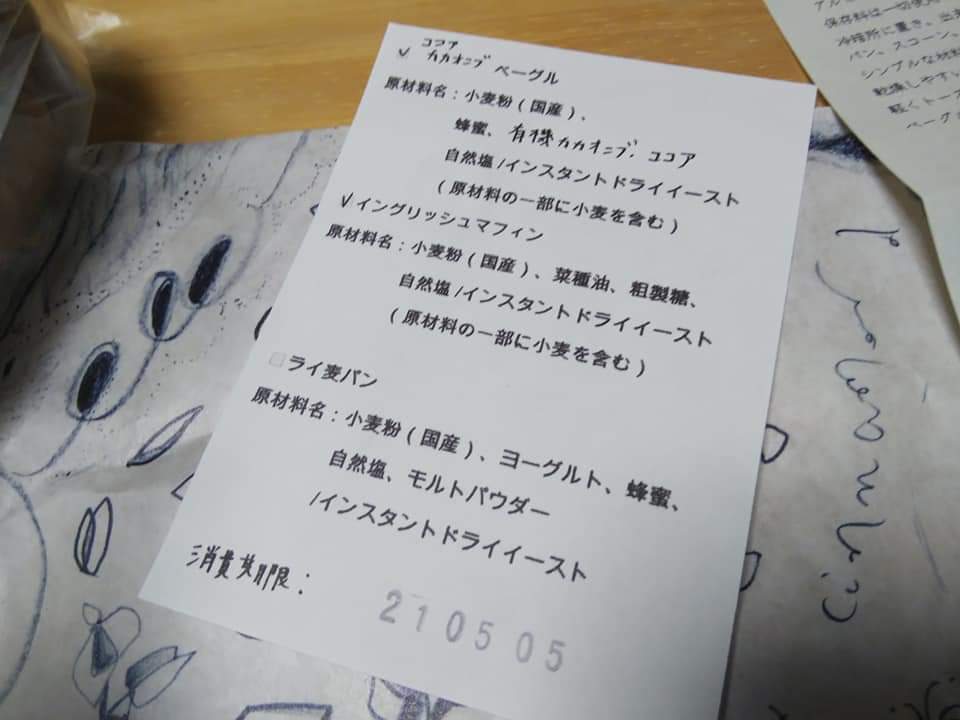 ココア
✓ カカオニブ ベーグル
原材料名：小麦粉（国産）、
蜂蜜、有機カカオニブ、ココア
自然塩/インスタントドライイースト
（原材料の一部に小麦を含む）
✓ イングリッシュマフィン
原材料名：小麦粉（国産）、菜種油、粗製糖、
自然塩/インスタントドライイースト
（原材料の一部に小麦を含む）
□ライ麦パン
原材料名：小麦粉（国産）、ヨーグルト、蜂蜜、
自然塩、モルトパウダー
/インスタントドライイースト
消費期限：
210505
保存料は一切使用
冷暗所に置き、出来
パン、スコーン、
シンプルな材料
乾燥しやすい
軽くトース
ベーグ